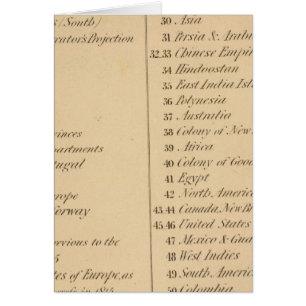 s (South)
rator's Projection
inces
partments
tugal
rope
orway
evious to the
5
tes of Europe, as
30 Asia
31 Persia & Arab
32.33 Chinese Empir
34 Hindoostan
35 East India Isl
36 Polynesia
37 Australia
38 Colony of New
39 Africa
40 Colony of Goo
41 Egypt
42 North Americ
43.44 Canada, New Br
45.46 United States
47 Mexico & Gua
48 West Indies
49 South America
50 Colombia